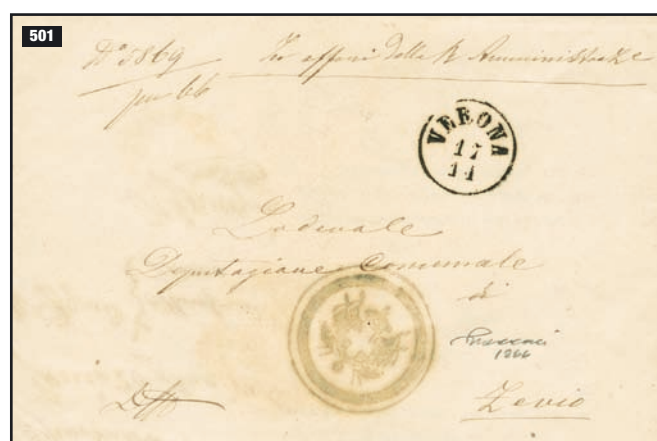 501
N° 5869 Per affari della R Amministraz.e
VERONA
17
11
Lodevole
Deputazione Comunale
di
1866
Zevio